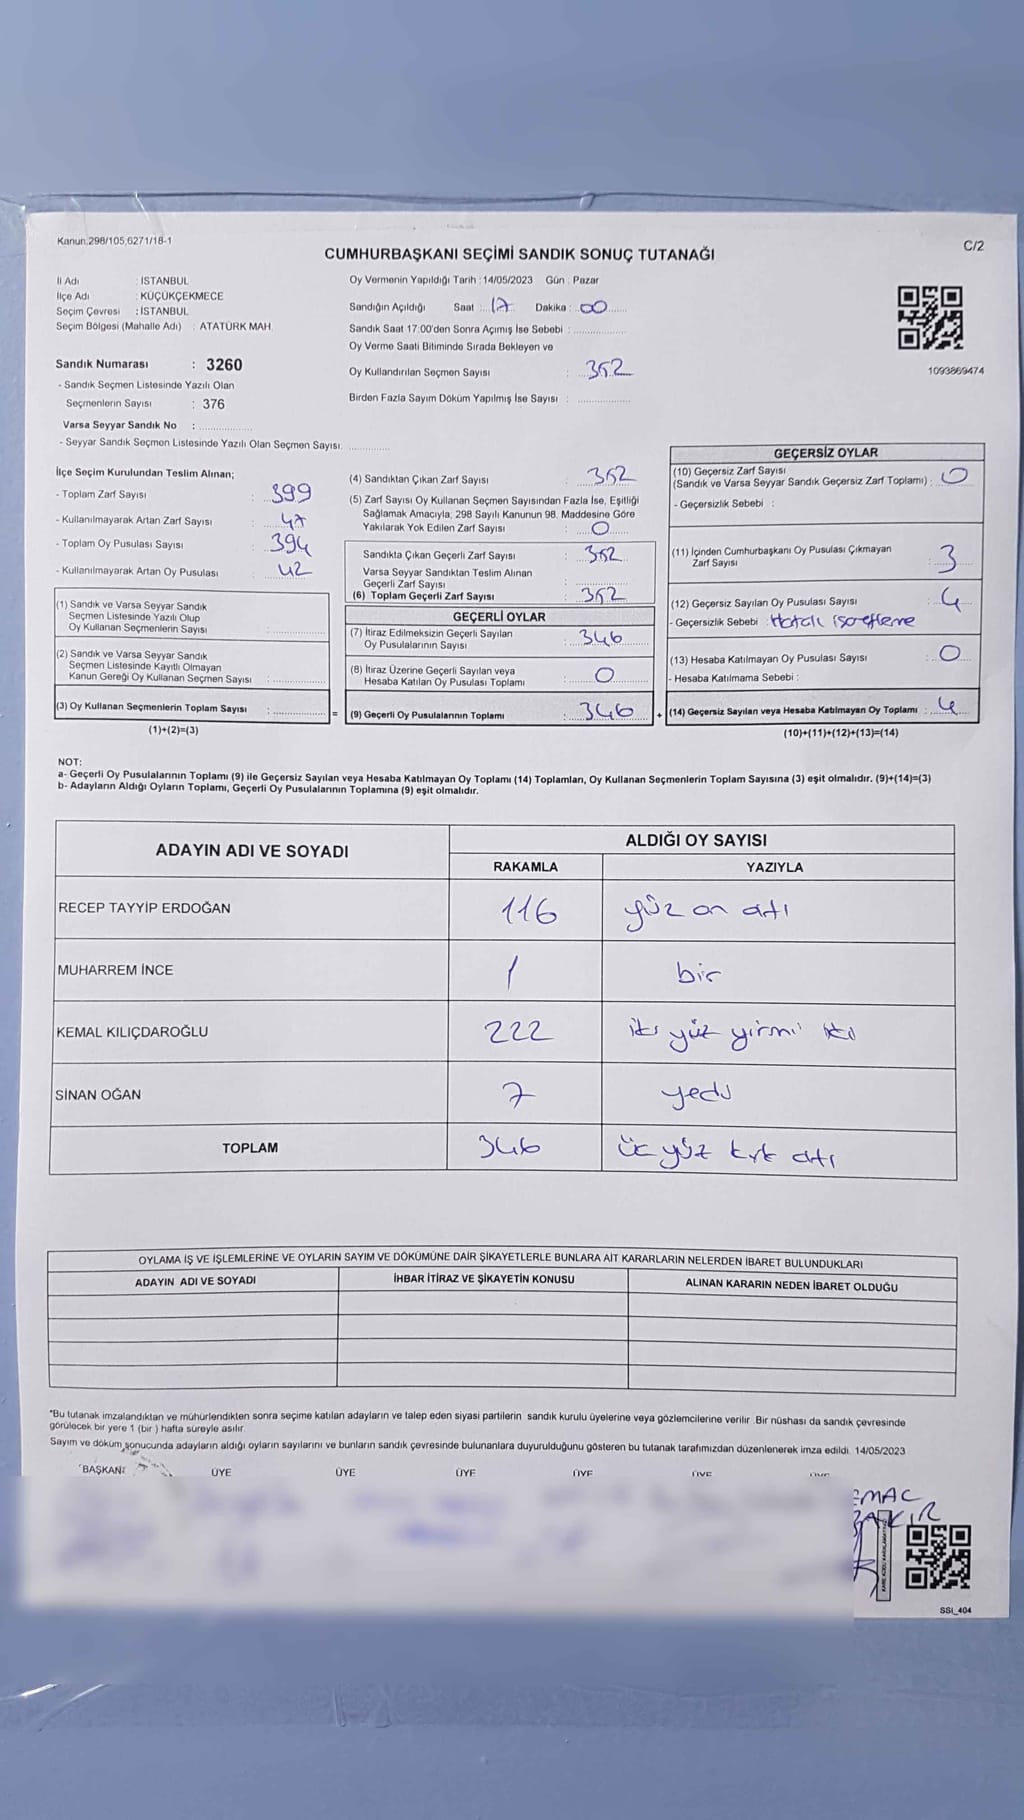 Kanun.298/105,6271/18-1
C/2
CUMHURBAŞKANI SEÇİMİ SANDIK SONUÇ TUTANAĞI
İl Adı : İSTANBUL
İlçe Adı : KÜÇÜKÇEKMECE
Seçim Çevresi : İSTANBUL
Seçim Bölgesi (Mahalle Adı) : ATATÜRK MAH.
Sandık Numarası : 3260
- Sandık Seçmen Listesinde Yazılı Olan
Seçmenlerin Sayısı : 376
Varsa Seyyar Sandık No :
- Seyyar Sandık Seçmen Listesinde Yazılı Olan Seçmen Sayısı:
Oy Vermenin Yapıldığı Tarih : 14/05/2023 Gün : Pazar
Sandığın Açıldığı Saat : 17 Dakika : 00
Sandık Saat 17:00'den Sonra Açımış İse Sebebi :
Oy Verme Saati Bitiminde Sırada Bekleyen ve
Oy Kullandırılan Seçmen Sayısı : 352
Birden Fazla Sayım Döküm Yapılmış İse Sayısı :
1093869474
İlçe Seçim Kurulundan Teslim Alınan;
- Toplam Zarf Sayısı : 399
- Kullanılmayarak Artan Zarf Sayısı : 47
- Toplam Oy Pusulası Sayısı : 394
- Kullanılmayarak Artan Oy Pusulası : 42
(1) Sandık ve Varsa Seyyar Sandık
Seçmen Listesinde Yazılı Olup
Oy Kullanan Seçmenlerin Sayısı :
(2) Sandık ve Varsa Seyyar Sandık
Seçmen Listesinde Kayıtlı Olmayan
Kanun Gereği Oy Kullanan Seçmen Sayısı :
(3) Oy Kullanan Seçmenlerin Toplam Sayısı :
(1)+(2)=(3)
(4) Sandıktan Çıkan Zarf Sayısı : 352
(5) Zarf Sayısı Oy Kullanan Seçmen Sayısından Fazla İse, Eşitliği
Sağlamak Amacıyla; 298 Sayılı Kanunun 98. Maddesine Göre
Yakılarak Yok Edilen Zarf Sayısı : 0
Sandıkta Çıkan Geçerli Zarf Sayısı : 352
Varsa Seyyar Sandıktan Teslim Alınan
Geçerli Zarf Sayısı :
(6) Toplam Geçerli Zarf Sayısı : 352
GEÇERLİ OYLAR
(7) İtiraz Edilmeksizin Geçerli Sayılan
Oy Pusulalarının Sayısı : 346
(8) İtiraz Üzerine Geçerli Sayılan veya
Hesaba Katılan Oy Pusulası Toplamı : 0
= (9) Geçerli Oy Pusulalarının Toplamı : 346
GEÇERSİZ OYLAR
(10) Geçersiz Zarf Sayısı
(Sandık ve Varsa Seyyar Sandık Geçersiz Zarf Toplamı) : 0
- Geçersizlik Sebebi :
(11) İçinden Cumhurbaşkanı Oy Pusulası Çıkmayan
Zarf Sayısı 3
(12) Geçersiz Sayılan Oy Pusulası Sayısı : 4
- Geçersizlik Sebebi : Hatalı işaretleme
(13) Hesaba Katılmayan Oy Pusulası Sayısı : 0
- Hesaba Katılmama Sebebi :
+ (14) Geçersiz Sayılan veya Hesaba Katılmayan Oy Toplamı : 4
(10)+(11)+(12)+(13)=(14)
NOT:
a- Geçerli Oy Pusulalarının Toplamı (9) ile Geçersiz Sayılan veya Hesaba Katılmayan Oy Toplamı (14) Toplamları, Oy Kullanan Seçmenlerin Toplam Sayısına (3) eşit olmalıdır. (9)+(14)=(3)
b- Adayların Aldığı Oyların Toplamı, Geçerli Oy Pusulalarının Toplamına (9) eşit olmalıdır.
ADAYIN ADI VE SOYADI
ALDIĞI OY SAYISI
RAKAMLA YAZIYLA
RECEP TAYYİP ERDOĞAN 116 yüz on altı
MUHARREM İNCE 1 bir
KEMAL KILIÇDAROĞLU 222 iki yüz yirmi iki
SİNAN OĞAN 7 yedi
TOPLAM 346 üç yüz kırk altı
OYLAMA İŞ VE İŞLEMLERİNE VE OYLARIN SAYIM VE DÖKÜMÜNE DAİR ŞİKAYETLERLE BUNLARA AİT KARARLARIN NELERDEN İBARET BULUNDUKLARI
ADAYIN ADI VE SOYADI İHBAR İTİRAZ VE ŞİKAYETİN KONUSU ALINAN KARARIN NEDEN İBARET OLDUĞU
*Bu tutanak imzalandıktan ve mühürlendikten sonra seçime katılan adayların ve talep eden siyasi partilerin sandık kurulu üyelerine veya gözlemcilerine verilir. Bir nüshası da sandık çevresinde
görülecek bir yere 1 (bir ) hafta süreyle asılır.
Sayım ve döküm sonucunda adayların aldığı oyların sayılarını ve bunların sandık çevresinde bulunanlara duyurulduğunu gösteren bu tutanak tarafımızdan düzenlenerek imza edildi. 14/05/2023
BAŞKAN ÜYE ÜYE ÜYE ÜYE ÜYE ÜYE
SSI_404